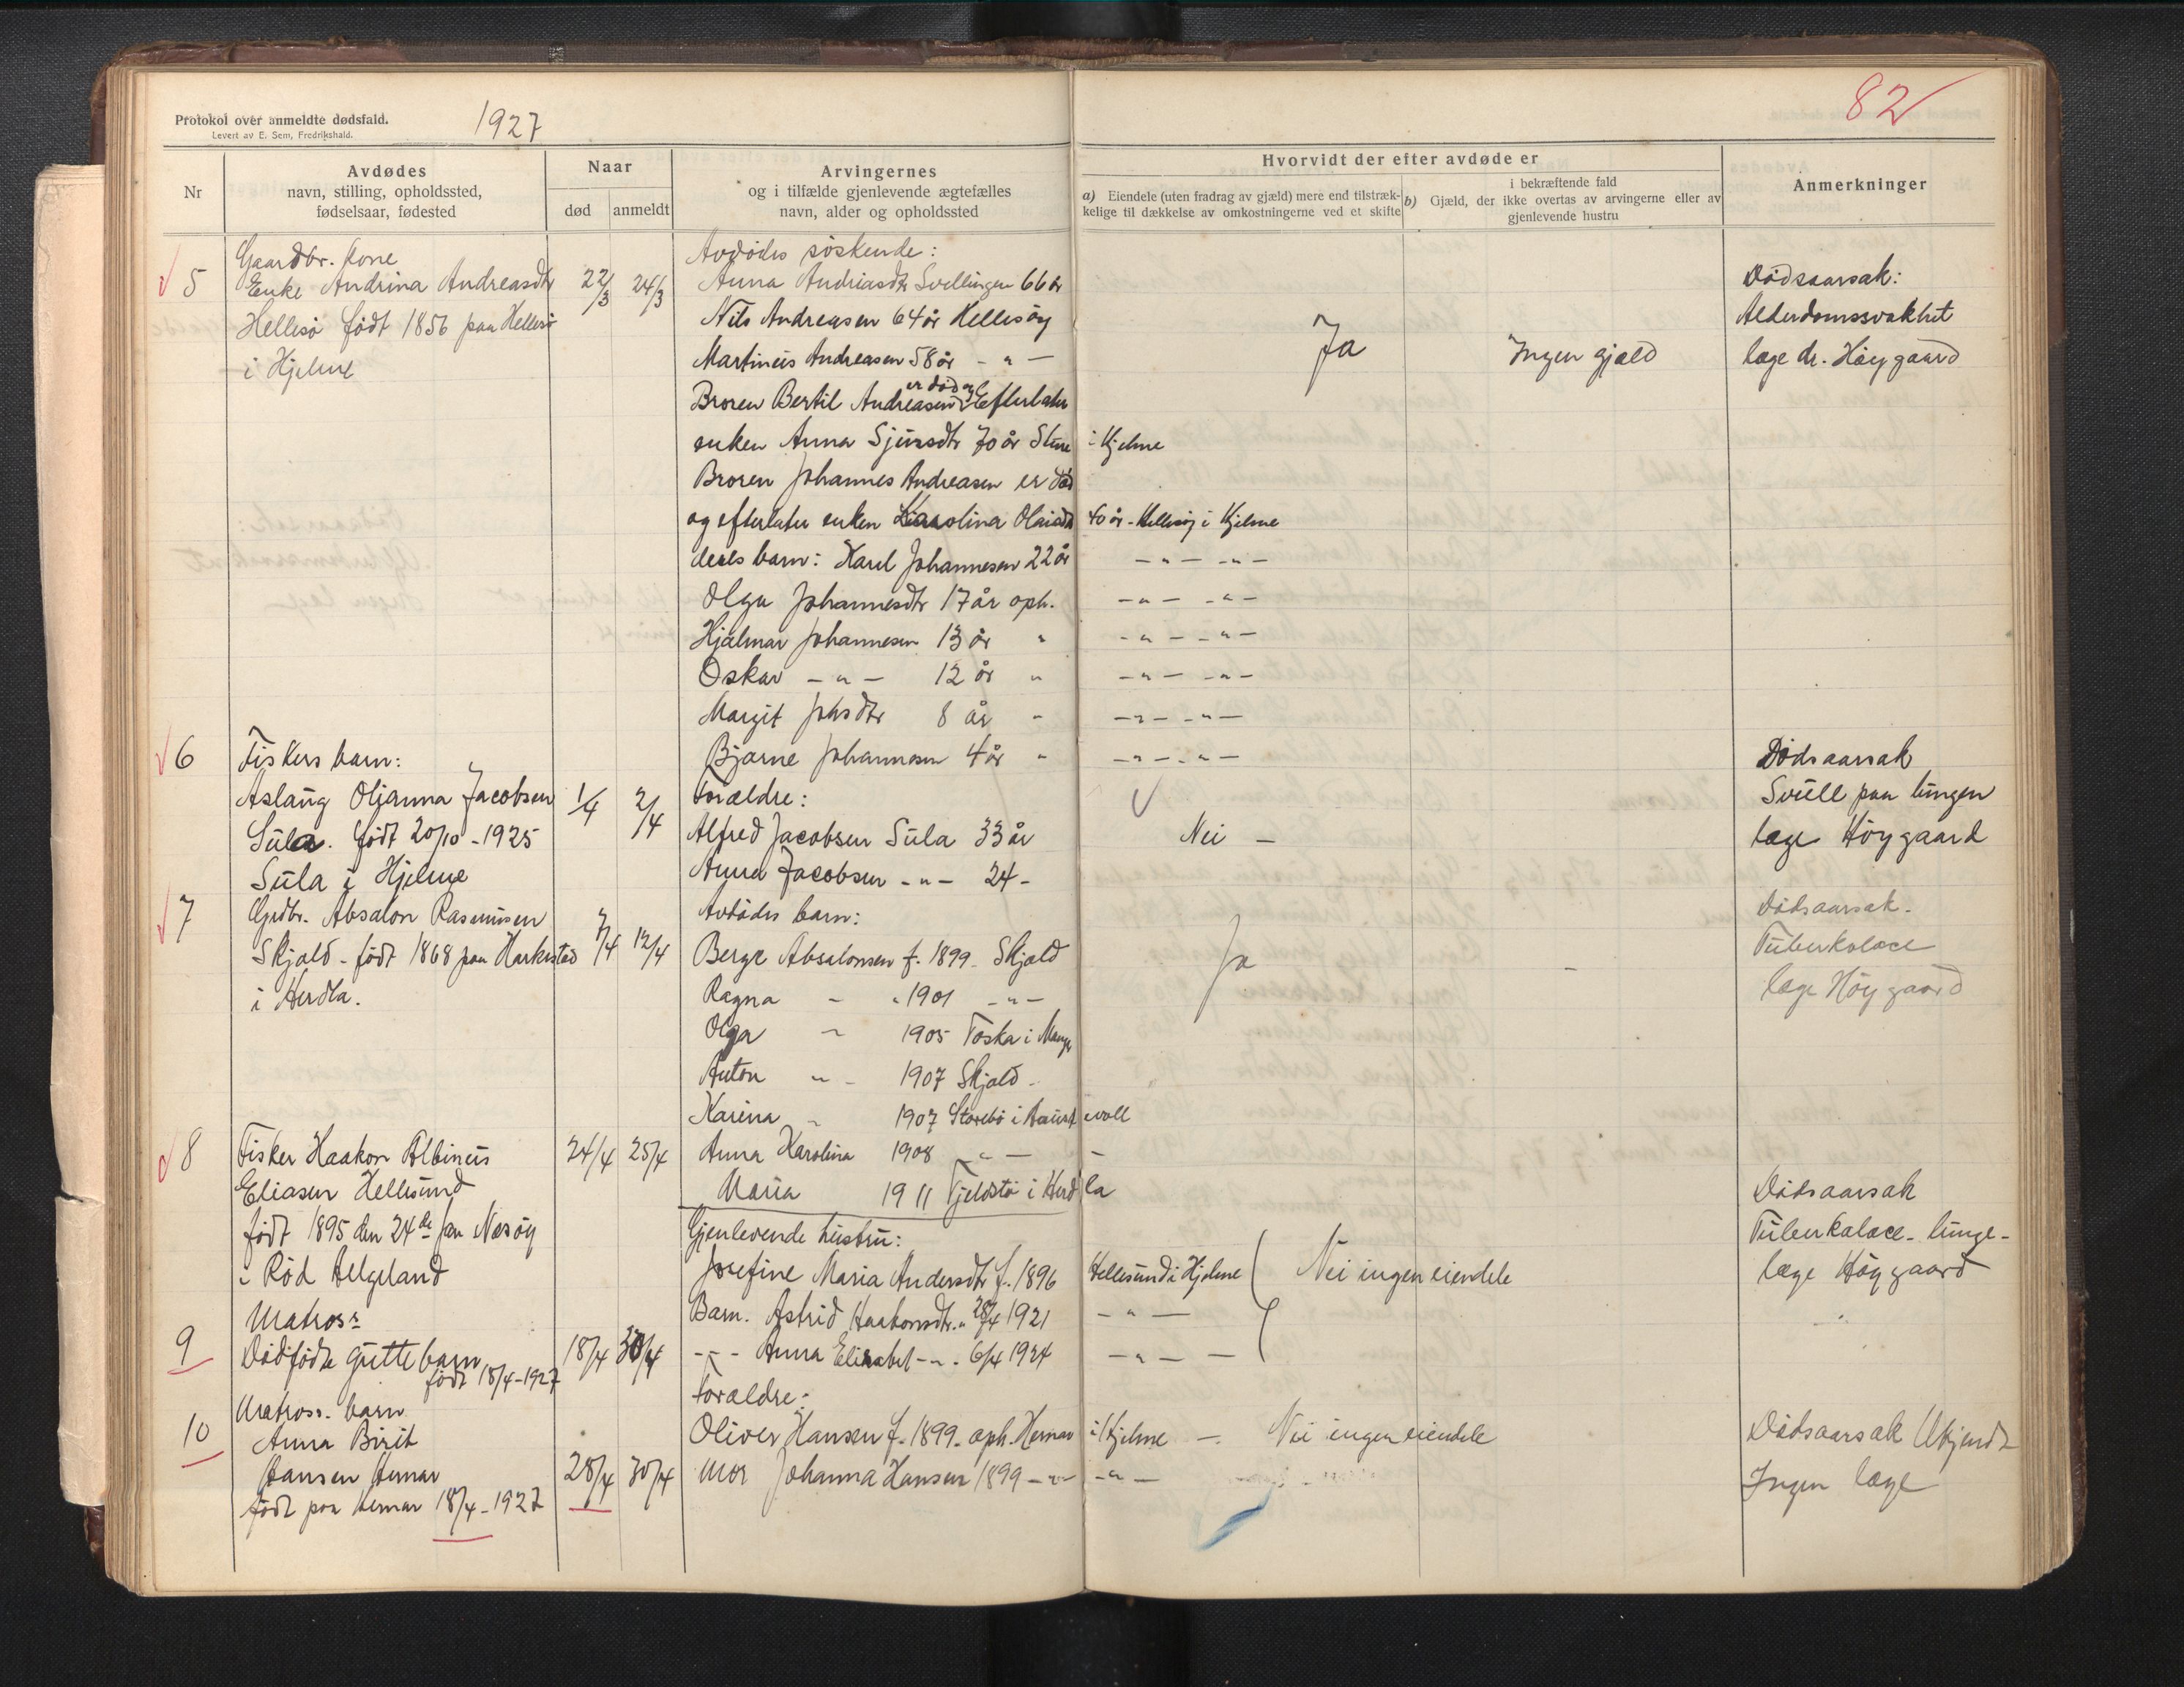 82
Protokol over anmeldte dødsfald.
Levert av E. Sem, Fredrikshald.
1927
Nr
Avdødes
navn, stilling, opholdssted,
fødselsaar, fødested
Naar
død
anmeldt
Arvingernes
og i tilfælde gjenlevende ægtefælles
navn, alder og opholdssted
Hvorvidt der efter avdøde er
a) Eiendele (uten fradrag av gjæld) mere end tilstræk-
kelige til dækkelse av omkostningerne ved et skifte
i bekræftende fald
b) Gjæld, der ikke overtas av arvingerne eller av
gjenlevende hustru
Anmerkninger
5
Gaardbr. kone
Enke Andrina Andreasdtr
Hellesö født 1856 paa Hellesö
i Hjelme
22/3 24/3
Avdødes søskende:
Anna Andreasdtr Svellingen 66 år
Nils Andreasen 64 år Hellesöy
Martinius Andreasen 58 år - " -
er död og
Broren Bertil Andreasen Efterlater
enken Anna Sjursdtr 70 år Sture i Hjelme
Broren Johannes Andreasen er död
og efterlater enken Karolina Olaisdtr 40 år - Hellesöy i Hjelme
deres barn: Karl Johannesen 22 år - " - - " -
Olga Johannesdtr 17 år oph. - " - - " -
Hjalmar Johannesen 13 år " - " - - " -
Oskar - " - 12 år " - " - - " -
Margit Johsdtr 8 år " - " - - " -
Bjarne Johannesen 4 år " - " - - " -
Ja
Ingen gjæld
Dødsaarsak:
Alderdomssvakhet
læge dr. Höygaard
6
Fiskers barn:
Aslaug Oljanna Jacobsen
Sula. født 20/10 - 1925
Sula i Hjelme
1/4 2/4
Forældre:
Alfred Jacobsen Sula 33 år
Anna Jacobsen - " - 24 -
Nei -
Dødsaarsak
Svull paa lungen
læge Höygaard
7
Grdbr. Absalon Rasmusen
Skjold - født 1868 paa Harkestad
i Herdla.
7/4 12/4
Avdødes barn:
Berge Absalonsen f. 1899 - Skjold
Ragna - " 1901 - " -
Olga - 1905 Toska i Mange
Anton " - 1907 Skjold -
Karina " 1907 Storebö i Austevoll
Anna Karolina 1908 - " - -
Maria 1911 Fjeldstö i Herdla
Ja
-
Dødsaarsak -
Tuberkolose
læge Höygaard
8
Fisker Haakon Albinius
Eliasen Hellesund
født 1895 den 24de jan Nesöy
i Rød Helgeland
24/4 25/4
Gjenlevende hustru:
Josefine Maria Andersdtr f. 1896 Hellesund i Hjelme
Barn. Astrid Haakonsdtr. " 28/4 1921 - " -
- - - Anna Elisabet - " - 6/4 1924 - " - -
Nei ingen eiendele
Dødsaarsak
Tuberkolose - lunge -
læge Höygaard
9
Matross
Dødfødt guttebarn
født 18/4 - 1927
18/4 30/4
10
Matross. barn
Anna Birit
Hansen Hernar
født paa Hernar 18/4 - 1927
28/4 30/4
Forældre:
Oliver Hansen f. 1899 - oph. Hernar i Hjelme -
Mor Johanna Hansen 1899 - " - - " -
Nei ingen eiendele
Dødsaarsak Ukjendt
Ingen læge